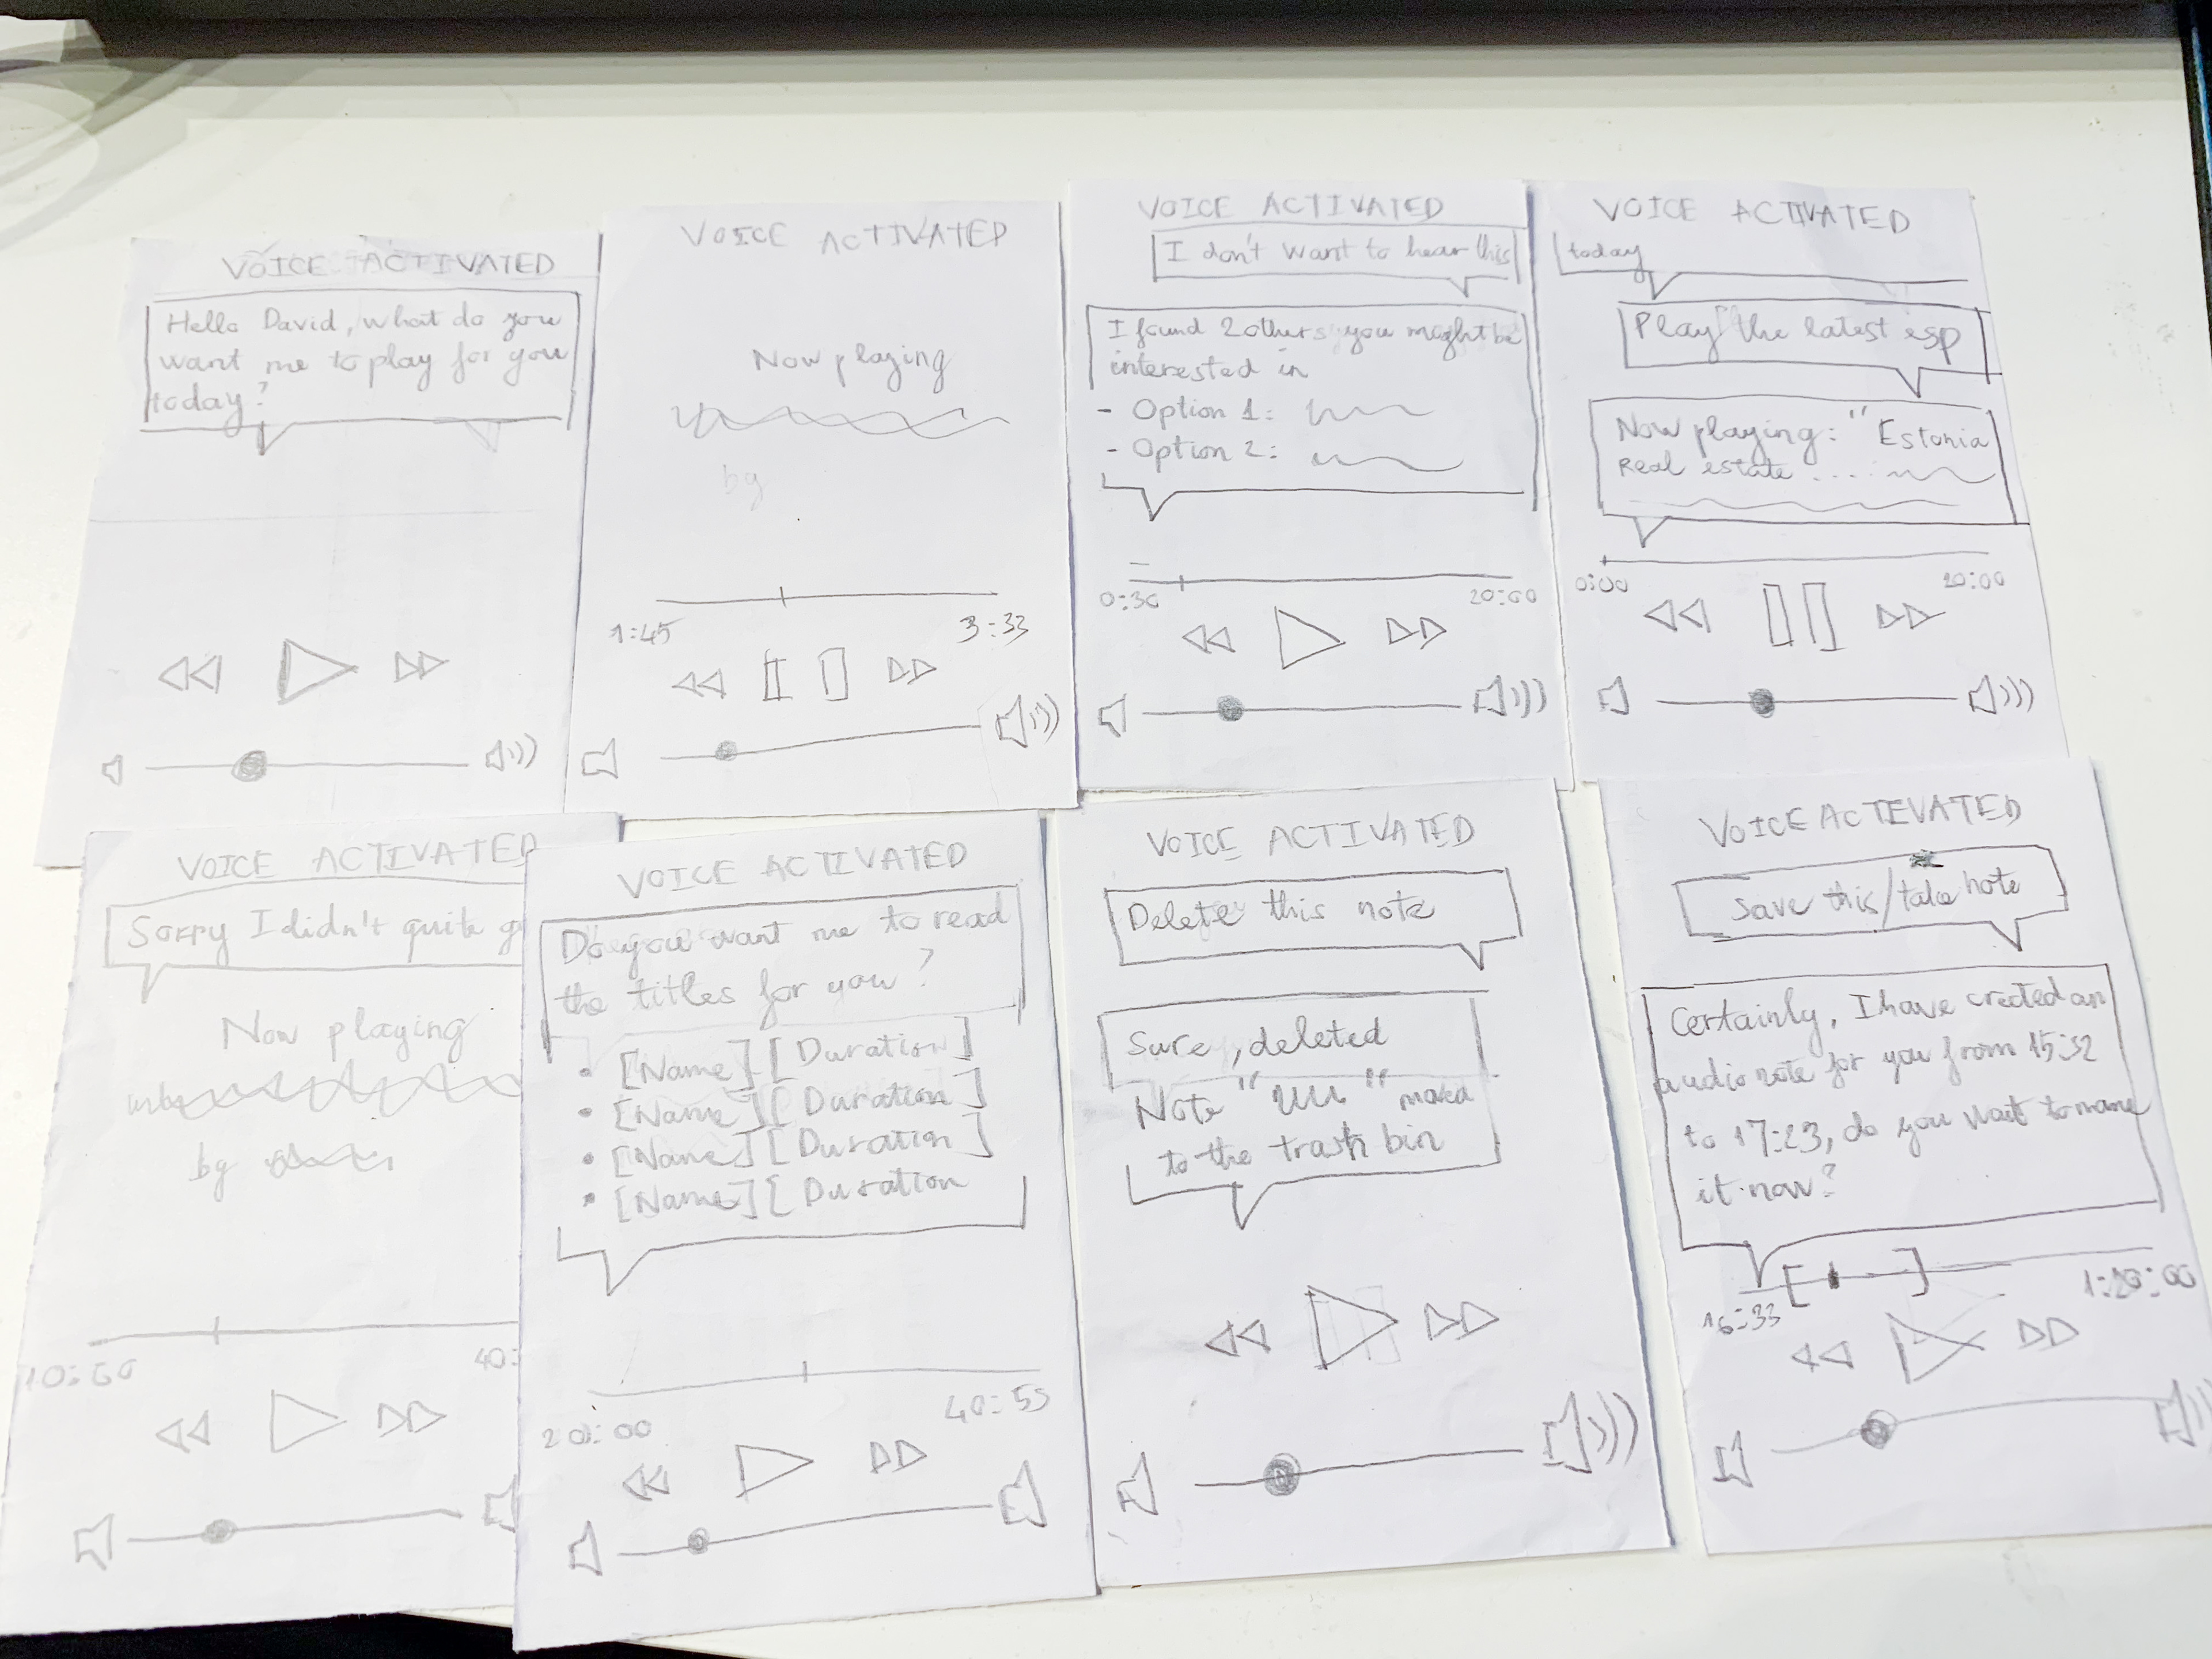 VOICE ACTIVATED
Hello David, what do you
want me to play for you
today?
VOICE ACTIVATED
Now playing
by
1:45
3:33
VOICE ACTIVATED
I don't want to hear this
I found 2 others you might be
interested in
- Option 1:
- Option 2:
0:30
20:00
VOICE ACTIVATED
today
Play the latest esp
Now playing: "Estonia
Real estate ....
0:00
VOICE ACTIVATED
Sorry I didn't quite g
Now playing
by
40:
VOICE ACTIVATED
Do you want me to read
the titles for you?
• [Name] [Duration]
• [Name] [Duration]
• [Name] [Duration]
• [Name] [Duration
20:00
40:55
VOICE ACTIVATED
Delete this note
Sure, deleted
Note " "
to the trash bin
VOICE ACTIVATED
Save this/take note
Certainly, I have created an
audio note for you from 15:32
to 17:23, do you want to name
it now?
16:33